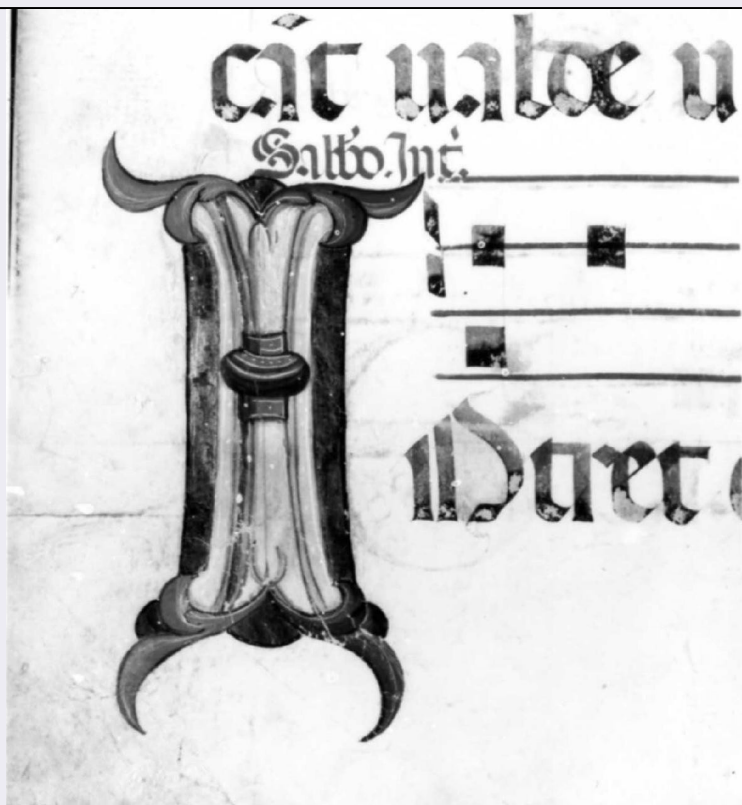 cit ualde u
Sabbo. Int.
INtret